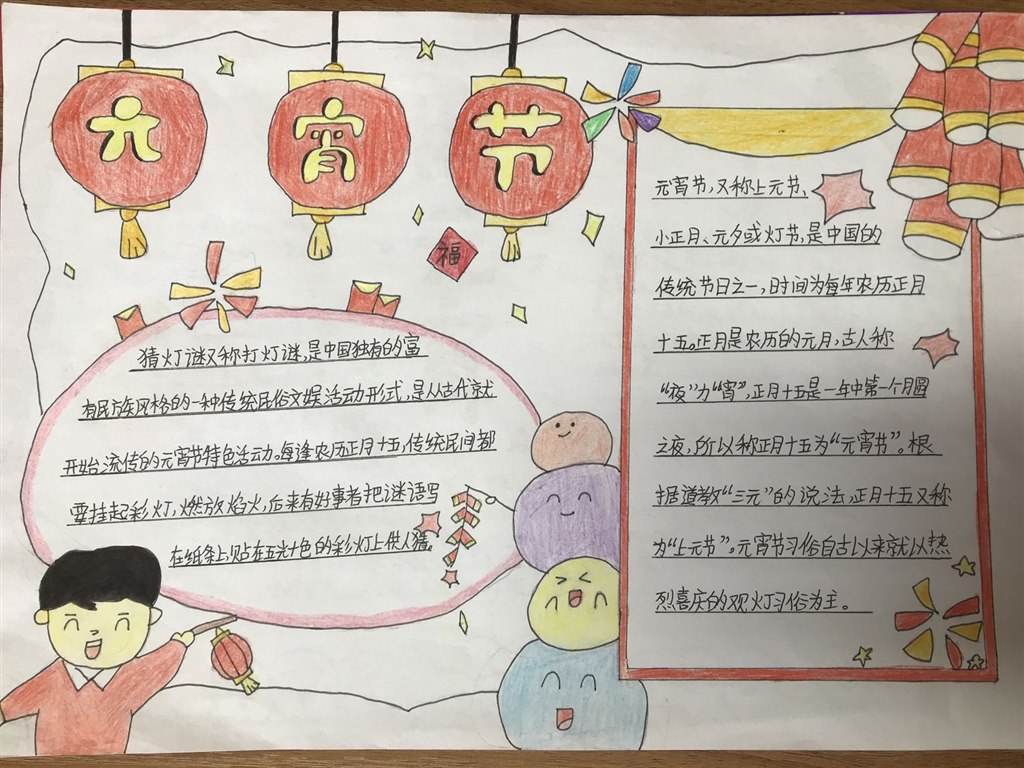 元宵节
福
猜灯谜又称打灯谜,是中国独有的富
有民族风格的一种传统民俗文娱活动形式,是从古代就
开始流传的元宵节特色活动。每逢农历正月十五,传统民间都
要挂起彩灯,燃放焰火,后来有好事者把谜语写
在纸条上,贴在五光十色的彩灯上供人猜。
元宵节,又称上元节、
小正月、元夕或灯节,是中国的
传统节日之一,时间为每年农历正月
十五。正月是农历的元月,古人称
“夜”为“宵”,正月十五是一年中第一个月圆
之夜,所以称正月十五为“元宵节”。根
据道教“三元”的说法,正月十五又称
为“上元节”。元宵节习俗自古以来就以热
烈喜庆的观灯习俗为主。